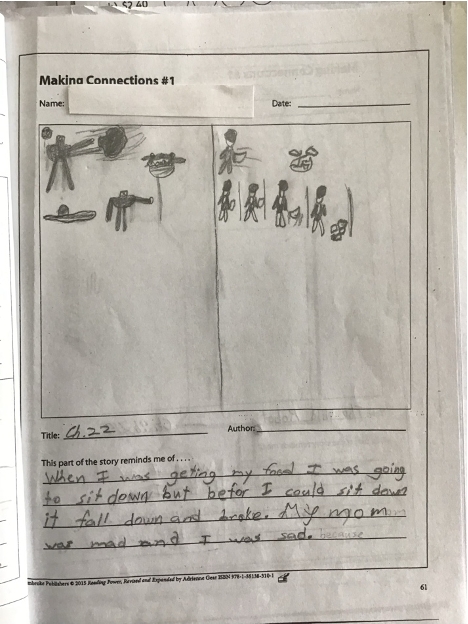 Making Connections #1
Name:
Date:
Title: Ch. 22
Author:
This part of the story reminds me of . . . .
When I was geting my food I was going
to sit down but befor I could sit down
it fall down and broke. My mom
was mad and I was sad. because
Publishers © 2015 Reading Power, Revised and Expanded by Adrienne Gear ISBN 978-1-55138-310-1
61